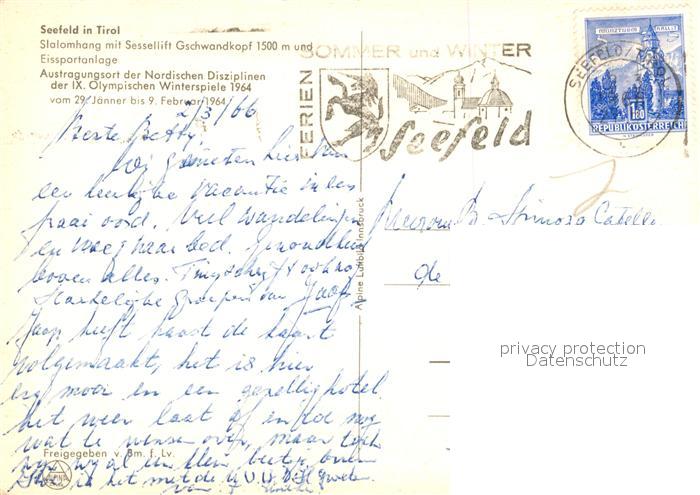 Seefeld in Tirol
Slalomhang mit Sessellift Gschwandkopf 1500 m und
Eissportanlage
Austragungsort der Nordischen Disziplinen
der IX. Olympischen Winterspiele 1964
vom 29. Jänner bis 9. Februar 1964
FERIEN
SOMMER und WINTER
Seefeld
SEEFELD / TIROL
MÜNZTURM HALL I. T.
1.80
REPUBLIK ÖSTERREICH
2/3/66
Beste Betty,
Wij genieten hier van
een heerlijke vacantie in een
fraai oord. Veel wandelingen
en vroeg naar bed. Gezondheid
boven alles.
Hartelijke groeten van Jaap
Jaap heeft haast de kaart
volgemaakt, het is hier
erg mooi en een gezellig hotel.
het weer laat af en toe nog
wat te wensen over, maar toch
is het met de
Mevrouw B. Spinoza Catella
de
Alpine Luftbild Innsbruck
privacy protection
Datenschutz
Freigegeben v. Bm. f. Lv.